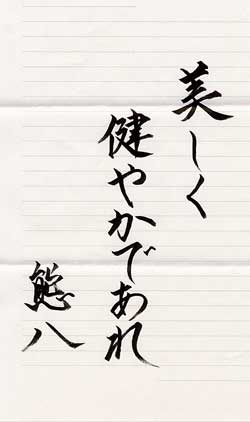 美しく
健やかであれ
態八